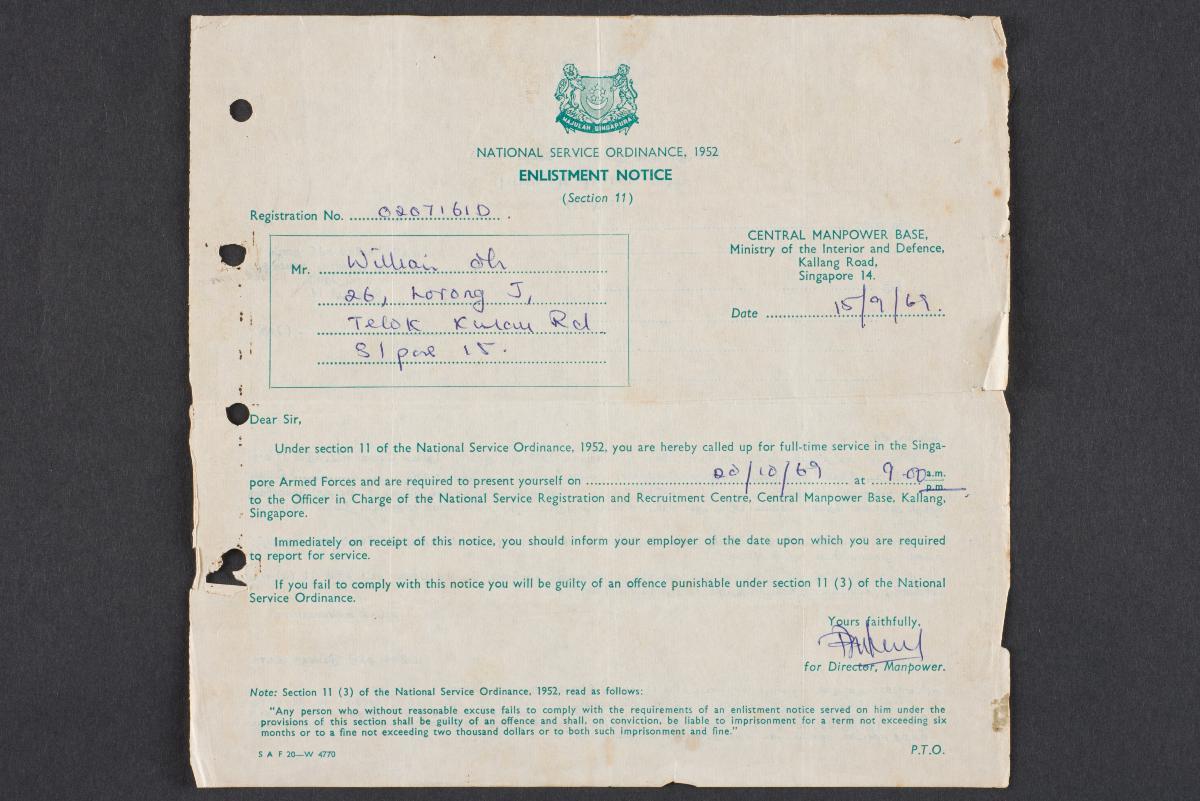 MAJULAH SINGAPURA
NATIONAL SERVICE ORDINANCE, 1952
ENLISTMENT NOTICE
(Section 11)
Registration No. 0207161D.
Mr. William Oh
26, Lorong J,
Telok Kurau Rd
S'pore 15.
CENTRAL MANPOWER BASE,
Ministry of the Interior and Defence,
Kallang Road,
Singapore 14.
Date 15/9/69.
Dear Sir,
Under section 11 of the National Service Ordinance, 1952, you are hereby called up for full-time service in the Singa-
pore Armed Forces and are required to present yourself on 20/10/69 at 9.00 a.m.
p.m.
to the Officer in Charge of the National Service Registration and Recruitment Centre, Central Manpower Base, Kallang,
Singapore.
Immediately on receipt of this notice, you should inform your employer of the date upon which you are required
to report for service.
If you fail to comply with this notice you will be guilty of an offence punishable under section 11 (3) of the National
Service Ordinance.
Yours faithfully,
for Director, Manpower.
Note: Section 11 (3) of the National Service Ordinance, 1952, read as follows:
"Any person who without reasonable excuse fails to comply with the requirements of an enlistment notice served on him under the
provisions of this section shall be guilty of an offence and shall, on conviction, be liable to imprisonment for a term not exceeding six
months or to a fine not exceeding two thousand dollars or to both such imprisonment and fine."
S A F 20—W 4770
P.T.O.